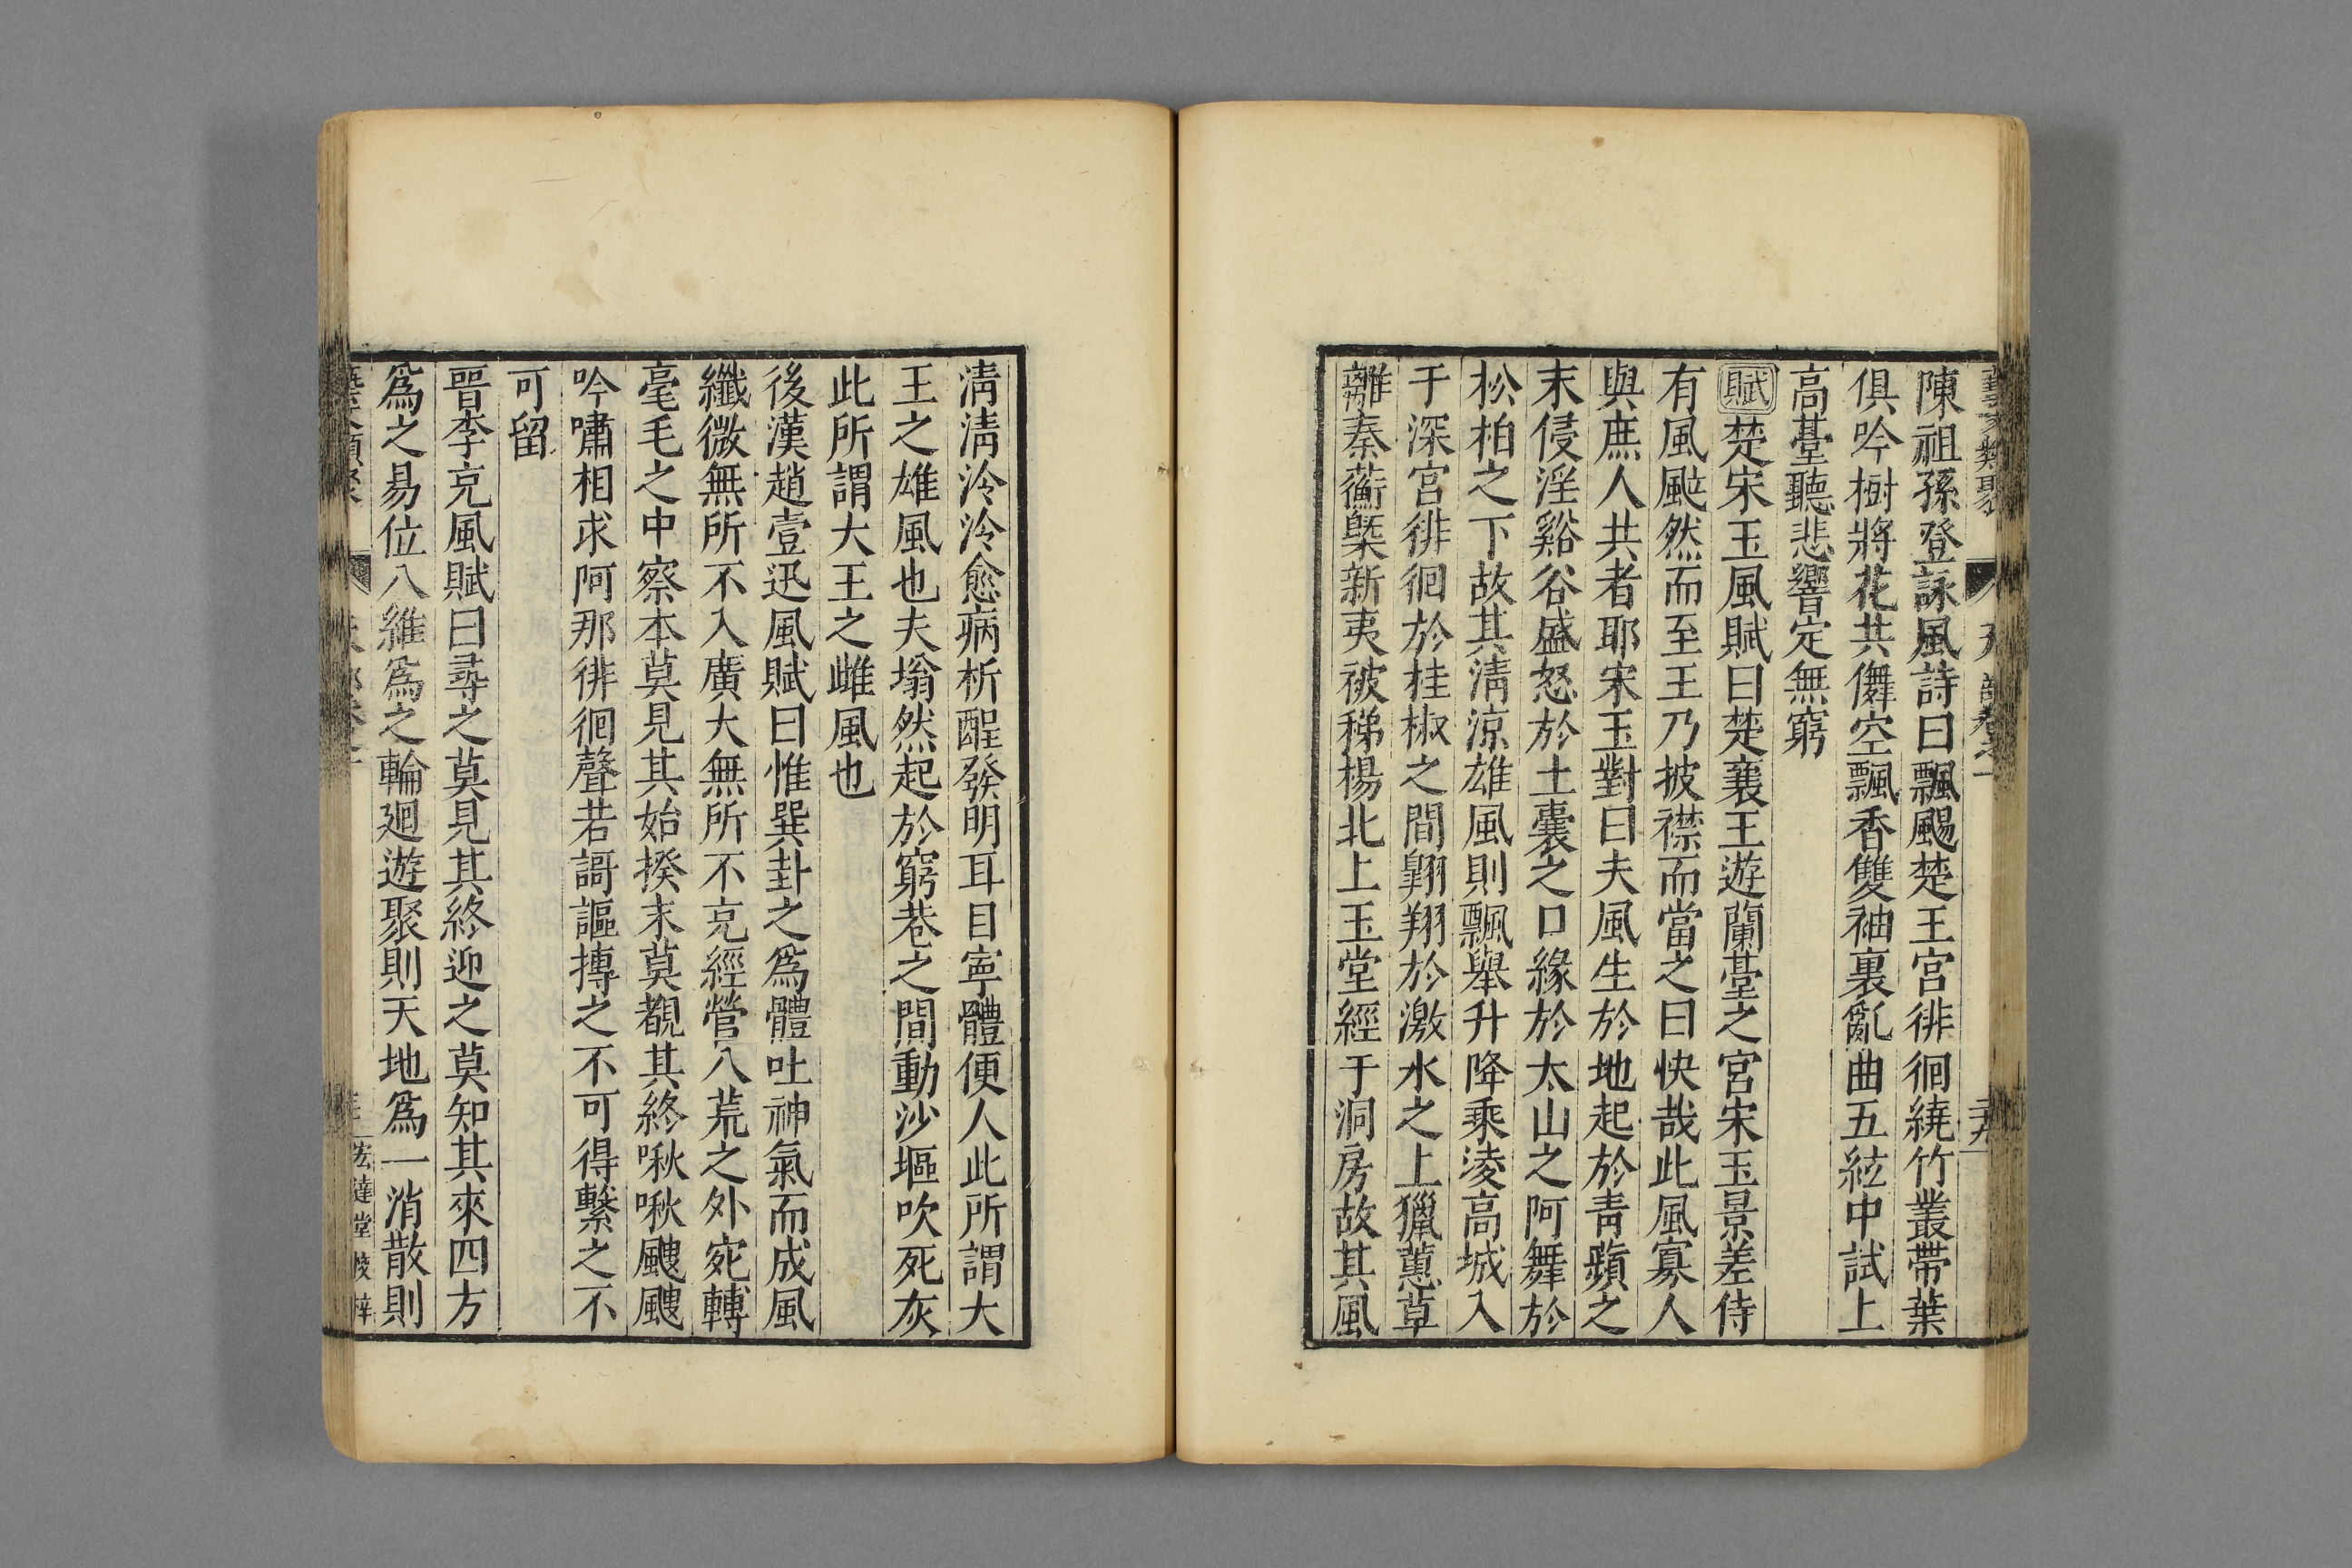 陳祖孫登詠風詩曰飄颺楚王宮徘徊繞竹叢帶葉
俱吟樹將花共儛空飄香雙袖裏亂曲五絃中試上
高臺聽悲響定無窮
賦楚宋玉風賦曰楚襄王遊蘭臺之宮宋玉景差侍
有風颯然而至王乃披襟而當之曰快哉此風寡人
與庶人共者耶宋玉對曰夫風生於地起於青蘋之
末侵淫谿谷盛怒於土囊之口緣於太山之阿舞於
松柏之下故其清涼雄風則飄舉升降乘淩高城入
于深宮徘徊於桂椒之間翺翔於激水之上獵蕙草
離秦蘅槩新夷被稊楊北上玉堂經于洞房故其風
清清泠泠愈病析酲發明耳目寧體便人此所謂大
王之雄風也夫塕然起於窮巷之間動沙堀吹死灰
此所謂大王之雌風也
後漢趙壹迅風賦曰惟巽卦之為體吐神氣而成風
纖微無所不入廣大無所不充經營八荒之外宛轉
毫毛之中察本莫見其始揆末莫覩其終啾啾颼颼
吟嘯相求阿那徘徊聲若謌謳摶之不可得繫之不
可留
晉李充風賦曰尋之莫見其終迎之莫知其來四方
為之易位八維為之輪廻遊聚則天地為一消散則